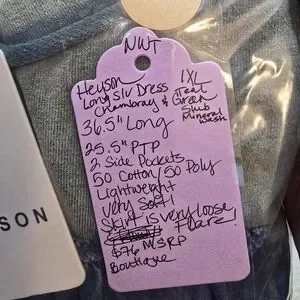 NWT
Heyson 1XL
Long Slv Dress Teal
Chambray & Green
Slub
Mineral
Wash
36.5" Long
25.5" PTP
2 Side Pockets
50 Cotton/50 Poly
Lightweight
Very Soft!
Skirt is very loose
Flare!
$76 MSRP
Boutique
SON